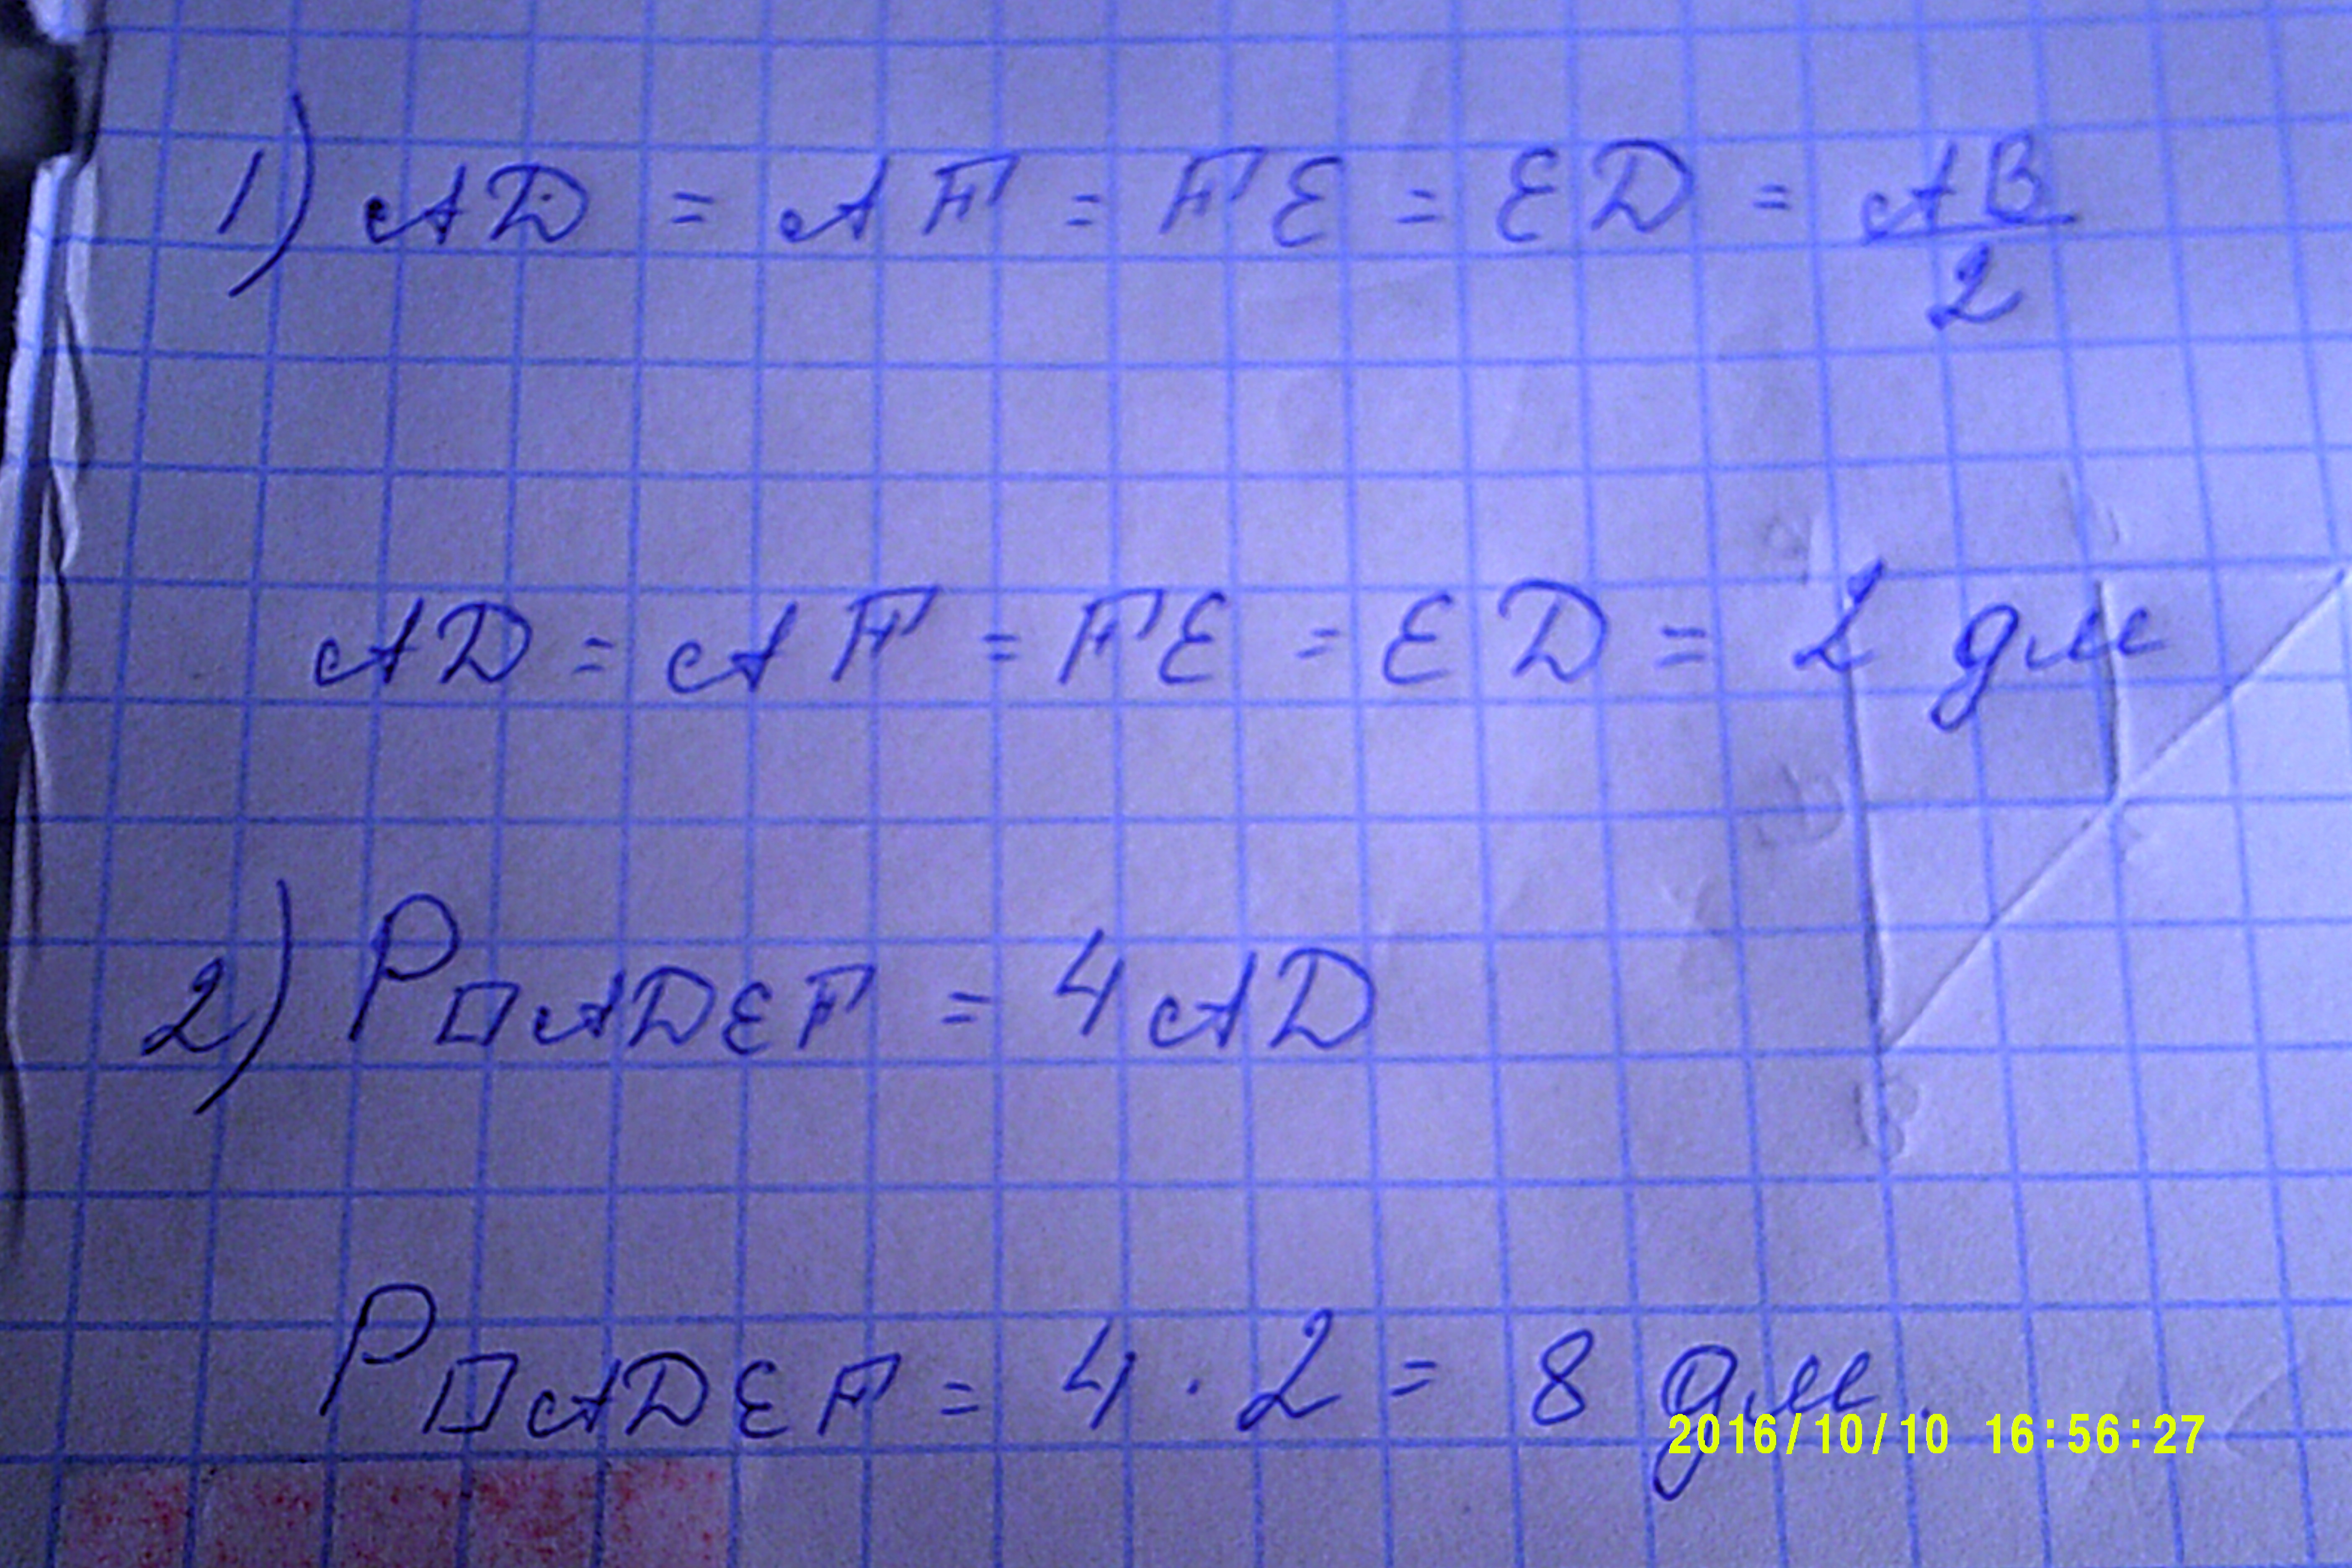 1) AD = AF = FE = ED = AB/2
AD = AF = FE = ED = 2 дм
2) P▱ADEF = 4AD
P▱ADEF = 4 · 2 = 8 дм.
2016/10/10 16:56:27